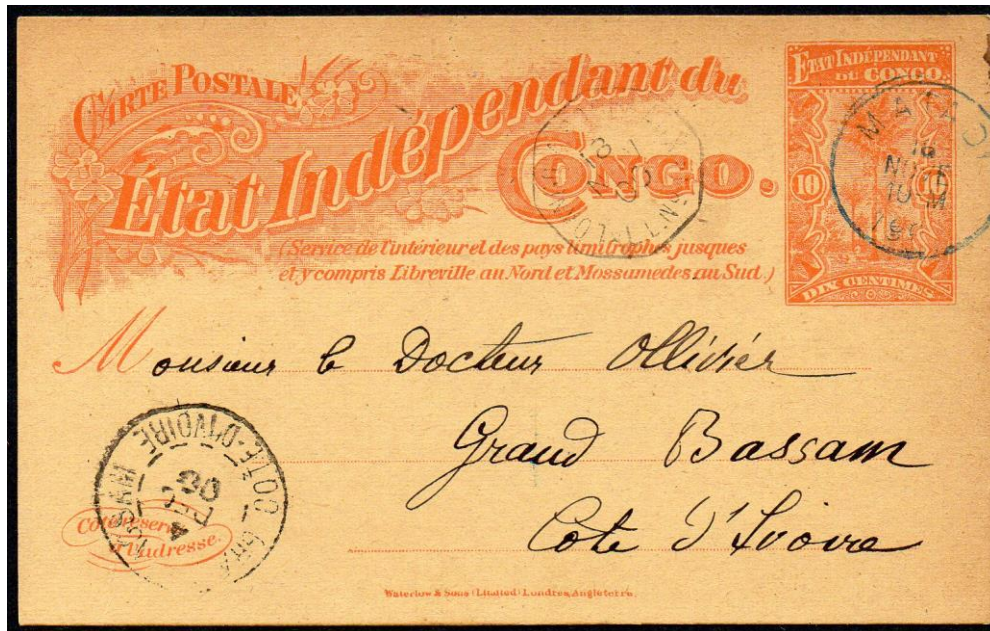 CARTE POSTALE
État Indépendant du
CONGO.
(Service de l'intérieur et des pays limitrophes jusques
et y compris Libreville au Nord et Mossamedes au Sud.)
ÉTAT INDÉPENDANT
DU CONGO.
10
10
DIX CENTIMES
MATADI
16
Monsieur le Docteur Ollivier
Grand Bassam
Cote d'Ivoire
COTE-D'IVOIRE
BASSAM
DEC
00
Côté réservé
à l'adresse.
Waterlow & Sons Limited, Londres, Angleterre.